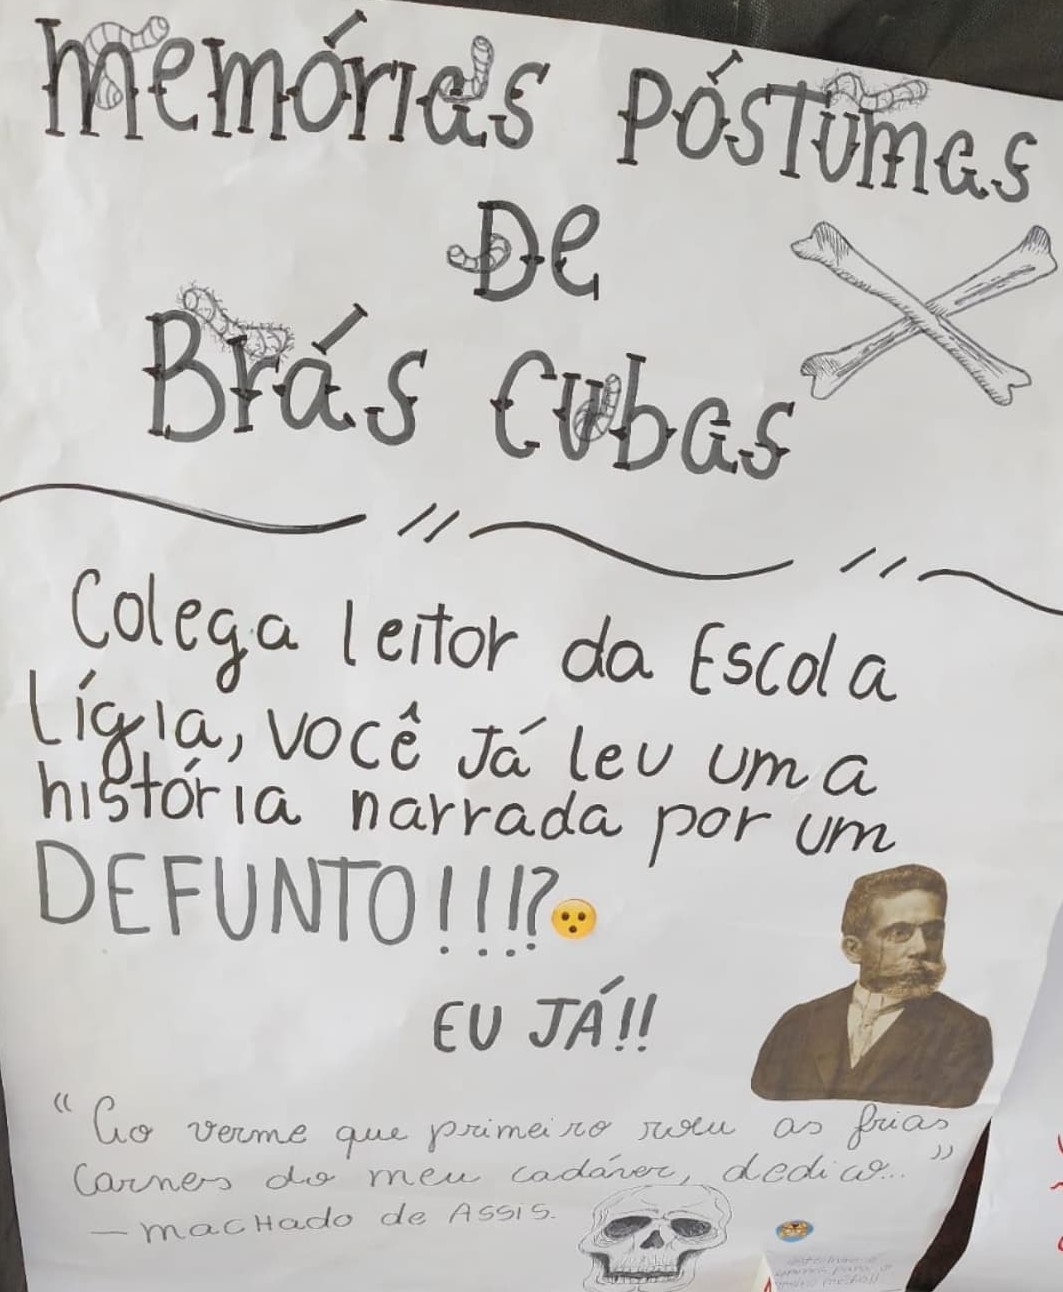 Memórias Póstumas
De
Brás Cubas
Colega leitor da Escola
Lígia, você Já leu uma
história narrada por um
DEFUNTO!!!?
EU JÁ!!
"Ao verme que primeiro roeu as frias
Carnes do meu cadáver, dedico..."
— Machado de Assis.